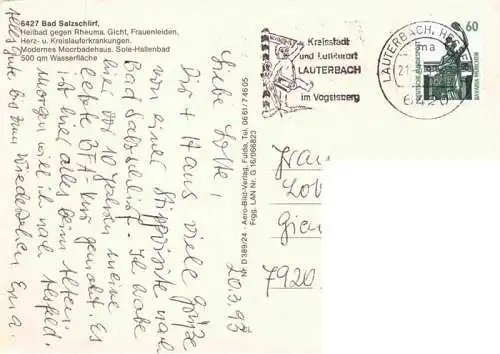 6427 Bad Salzschlirf,
Heilbad gegen Rheuma, Gicht, Frauenleiden,
Herz- u. Kreislauferkrankungen.
Modernes Moorbadehaus. Sole-Hallenbad
500 qm Wasserfläche
Kreisstadt
und Luftkurort
LAUTERBACH
im Vogelsberg
LAUTERBACH, HESSEN
6420
60
DEUTSCHE BUNDESPOST
BAVARIA MÜNCHEN
Nr. D 389/24 - Aero-Bild-Verlag, Fulda, Tel. 0661/74605
Frgg. LAN Nr. G 16/066823
20.3.93
Liebe Lotte!
Dir + Haus viele Grüße
von einer Stippvisite nach
Bad Salzschlirf. Ich habe
hier vor 10 Jahren meine
letzte BFA Kur gemacht. Es
ist hier alles beim Alten.
Morgen will ich nach Alsfeld.
Alles Gute bis zum Wiedersehen Erna.
Frau
7920